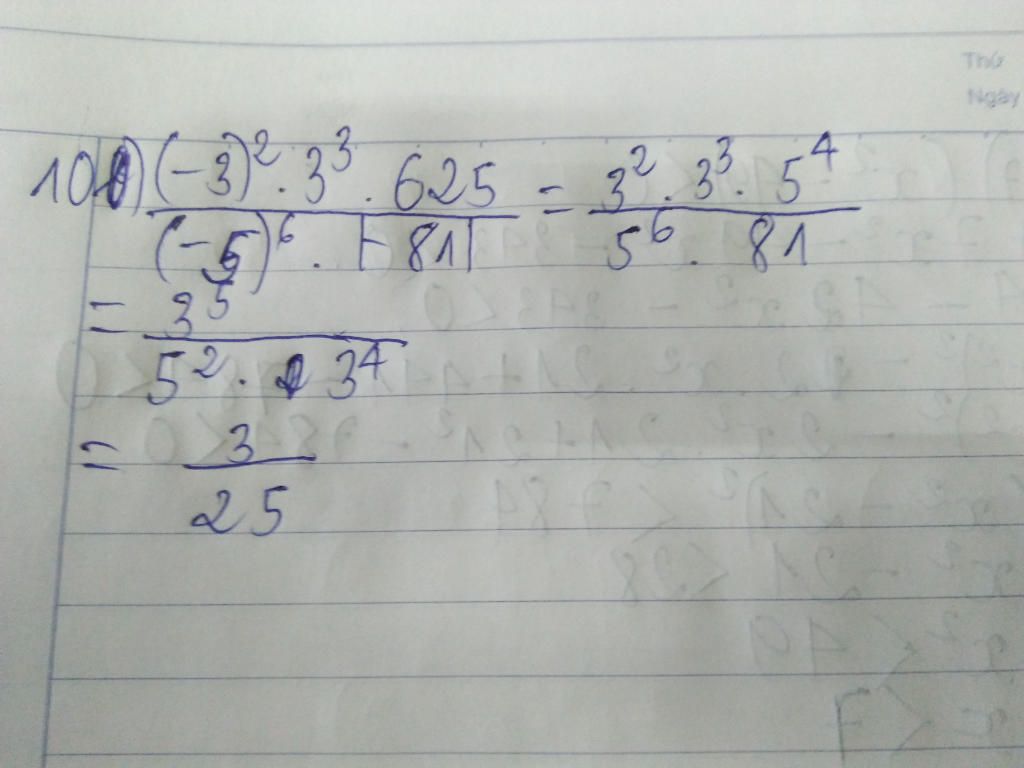 Thứ
Ngày
10) \frac{(-3)^2 . 3^3 . 625}{(-5)^6 . |-81|} = \frac{3^2 . 3^3 . 5^4}{5^6 . 81}
= \frac{3^5}{5^2 . 3^4}
= \frac{3}{25}